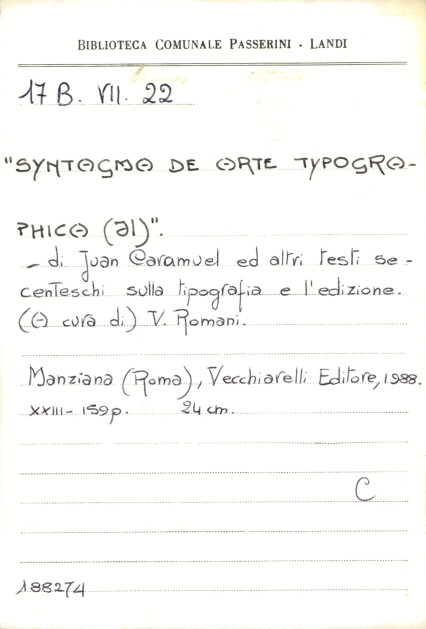 BIBLIOTECA COMUNALE PASSERINI - LANDI
17 B. VII. 22
"SYNTAGMA DE ARTE TYPOGRA-
PHICA (Il)".
- di Juan Caramuel ed altri testi se-
centeschi sulla tipografia e l'edizione.
(A cura di) V. Romani.
Manziana (Roma), Vecchiarelli Editore, 1988.
XXIII- 159 p. 24 cm.
C
188274